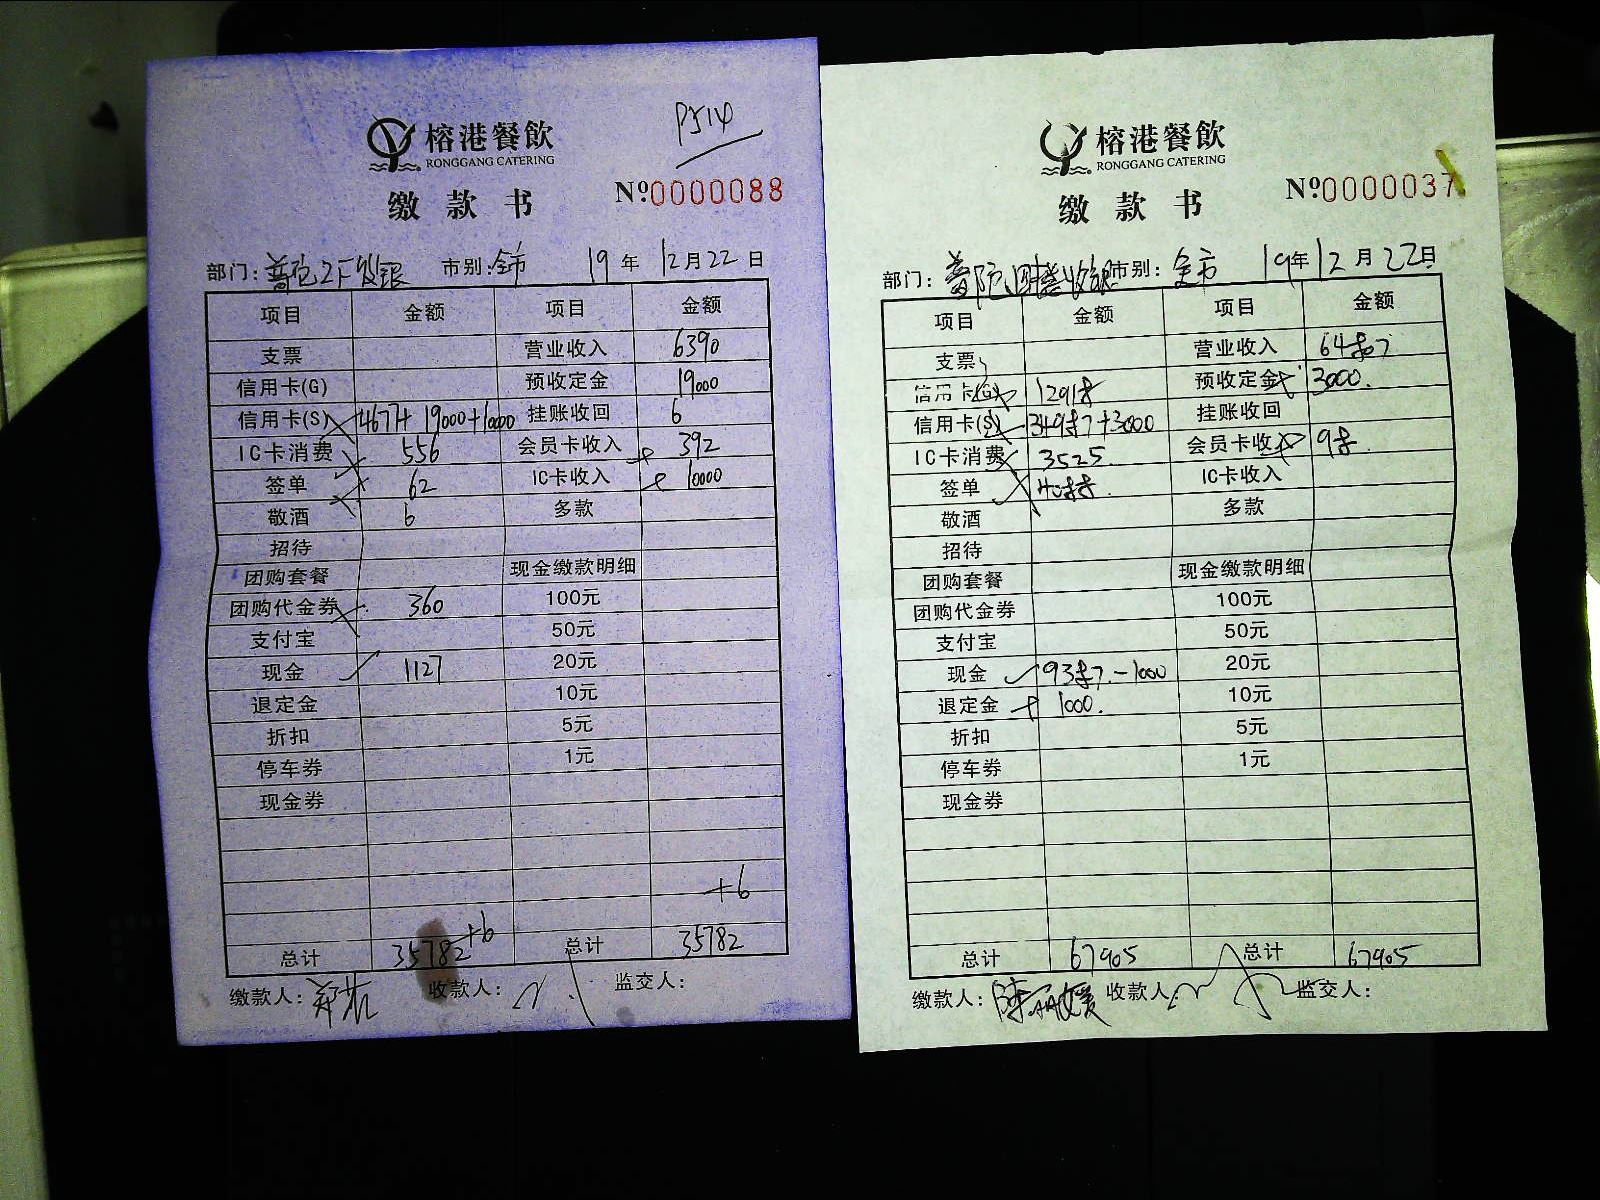 PJ14
榕港餐飲
RONGGANG CATERING
缴款书
Nº0000088
部门: 2F 市别: 全市 19年12月22日
项目 金额 项目 金额
支票 营业收入 6390
信用卡(G) 预收定金 19000
信用卡(S) 4677+19000+1000 挂账收回 6
IC卡消费 556 会员卡收入 392
签单 62 IC卡收入 10000
敬酒 6 多款
招待
团购套餐 现金缴款明细
团购代金券 360 100元
支付宝 50元
现金 1127 20元
退定金 10元
折扣 5元
停车券 1元
现金券
+6
总计 35782+6 总计 35782
缴款人: 收款人: 监交人:
榕港餐飲
RONGGANG CATERING
缴款书
Nº0000037
部门: 市别: 全市 19年12月22日
项目 金额 项目 金额
支票 营业收入
信用卡(G) 预收定金 3000.
信用卡(S) +3000 挂账收回
IC卡消费 3525. 会员卡收入
签单 IC卡收入
敬酒 多款
招待
团购套餐 现金缴款明细
团购代金券 100元
支付宝 50元
现金 -1000 20元
退定金 1000. 10元
折扣 5元
停车券 1元
现金券
总计 67905 总计 67905
缴款人: 收款人: 监交人: